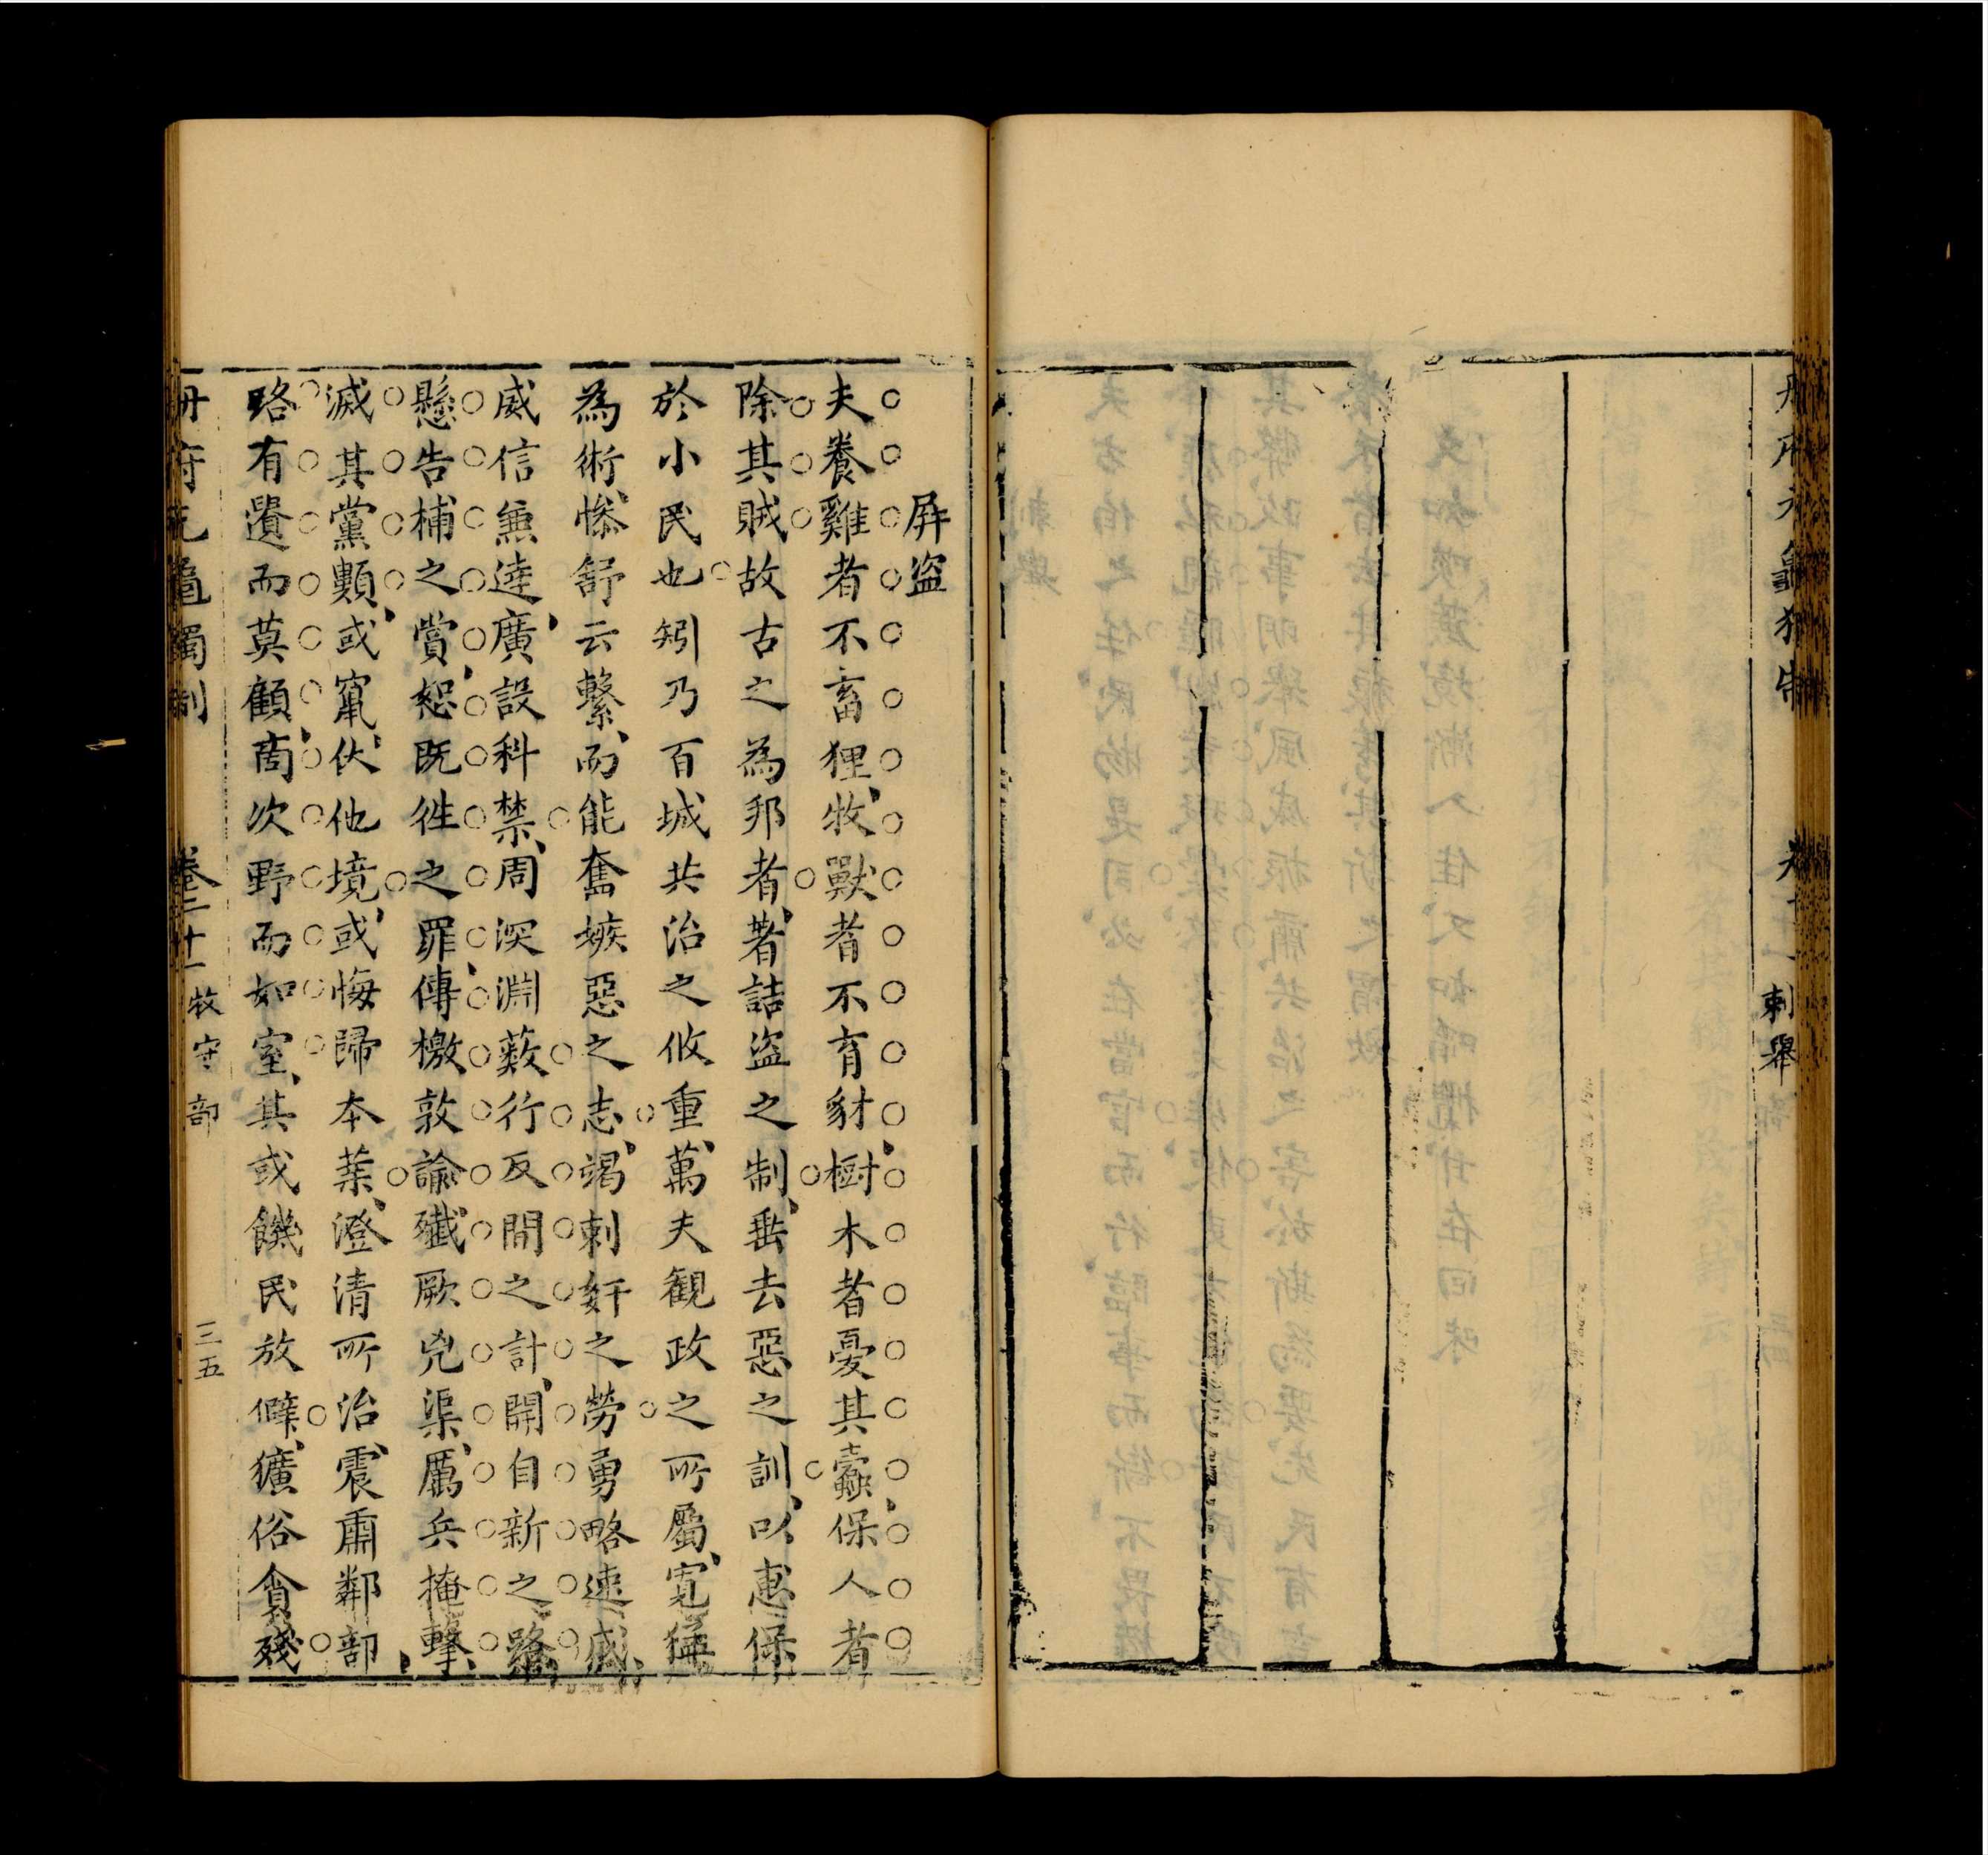 冊府元龜獨制
刺舉
屏盜
夫養雞者不畜狸牧獸者不育豺樹木者憂其蠹保人者
除其賊故古之為邦者著詰盜之制垂去惡之訓以惠保
於小民也矧乃百城共治之攸重萬夫觀政之所屬寬猛
為術慘舒云繫而能奮嫉惡之志竭刺奸之勞勇略速威
威信無逵廣設科禁周深淵藪行反間之計開自新之路
懸告捕之賞恕既徃之罪傳檄敦諭殲厥兇渠厲兵掩擊
滅其黨顆或竄伏他境或悔歸本業澄清所治震肅鄰部
路有遺而莫顧商次野而如室其或饑民放僻獷俗貪殘
冊府元龜獨制
卷二十一
牧守部
三五